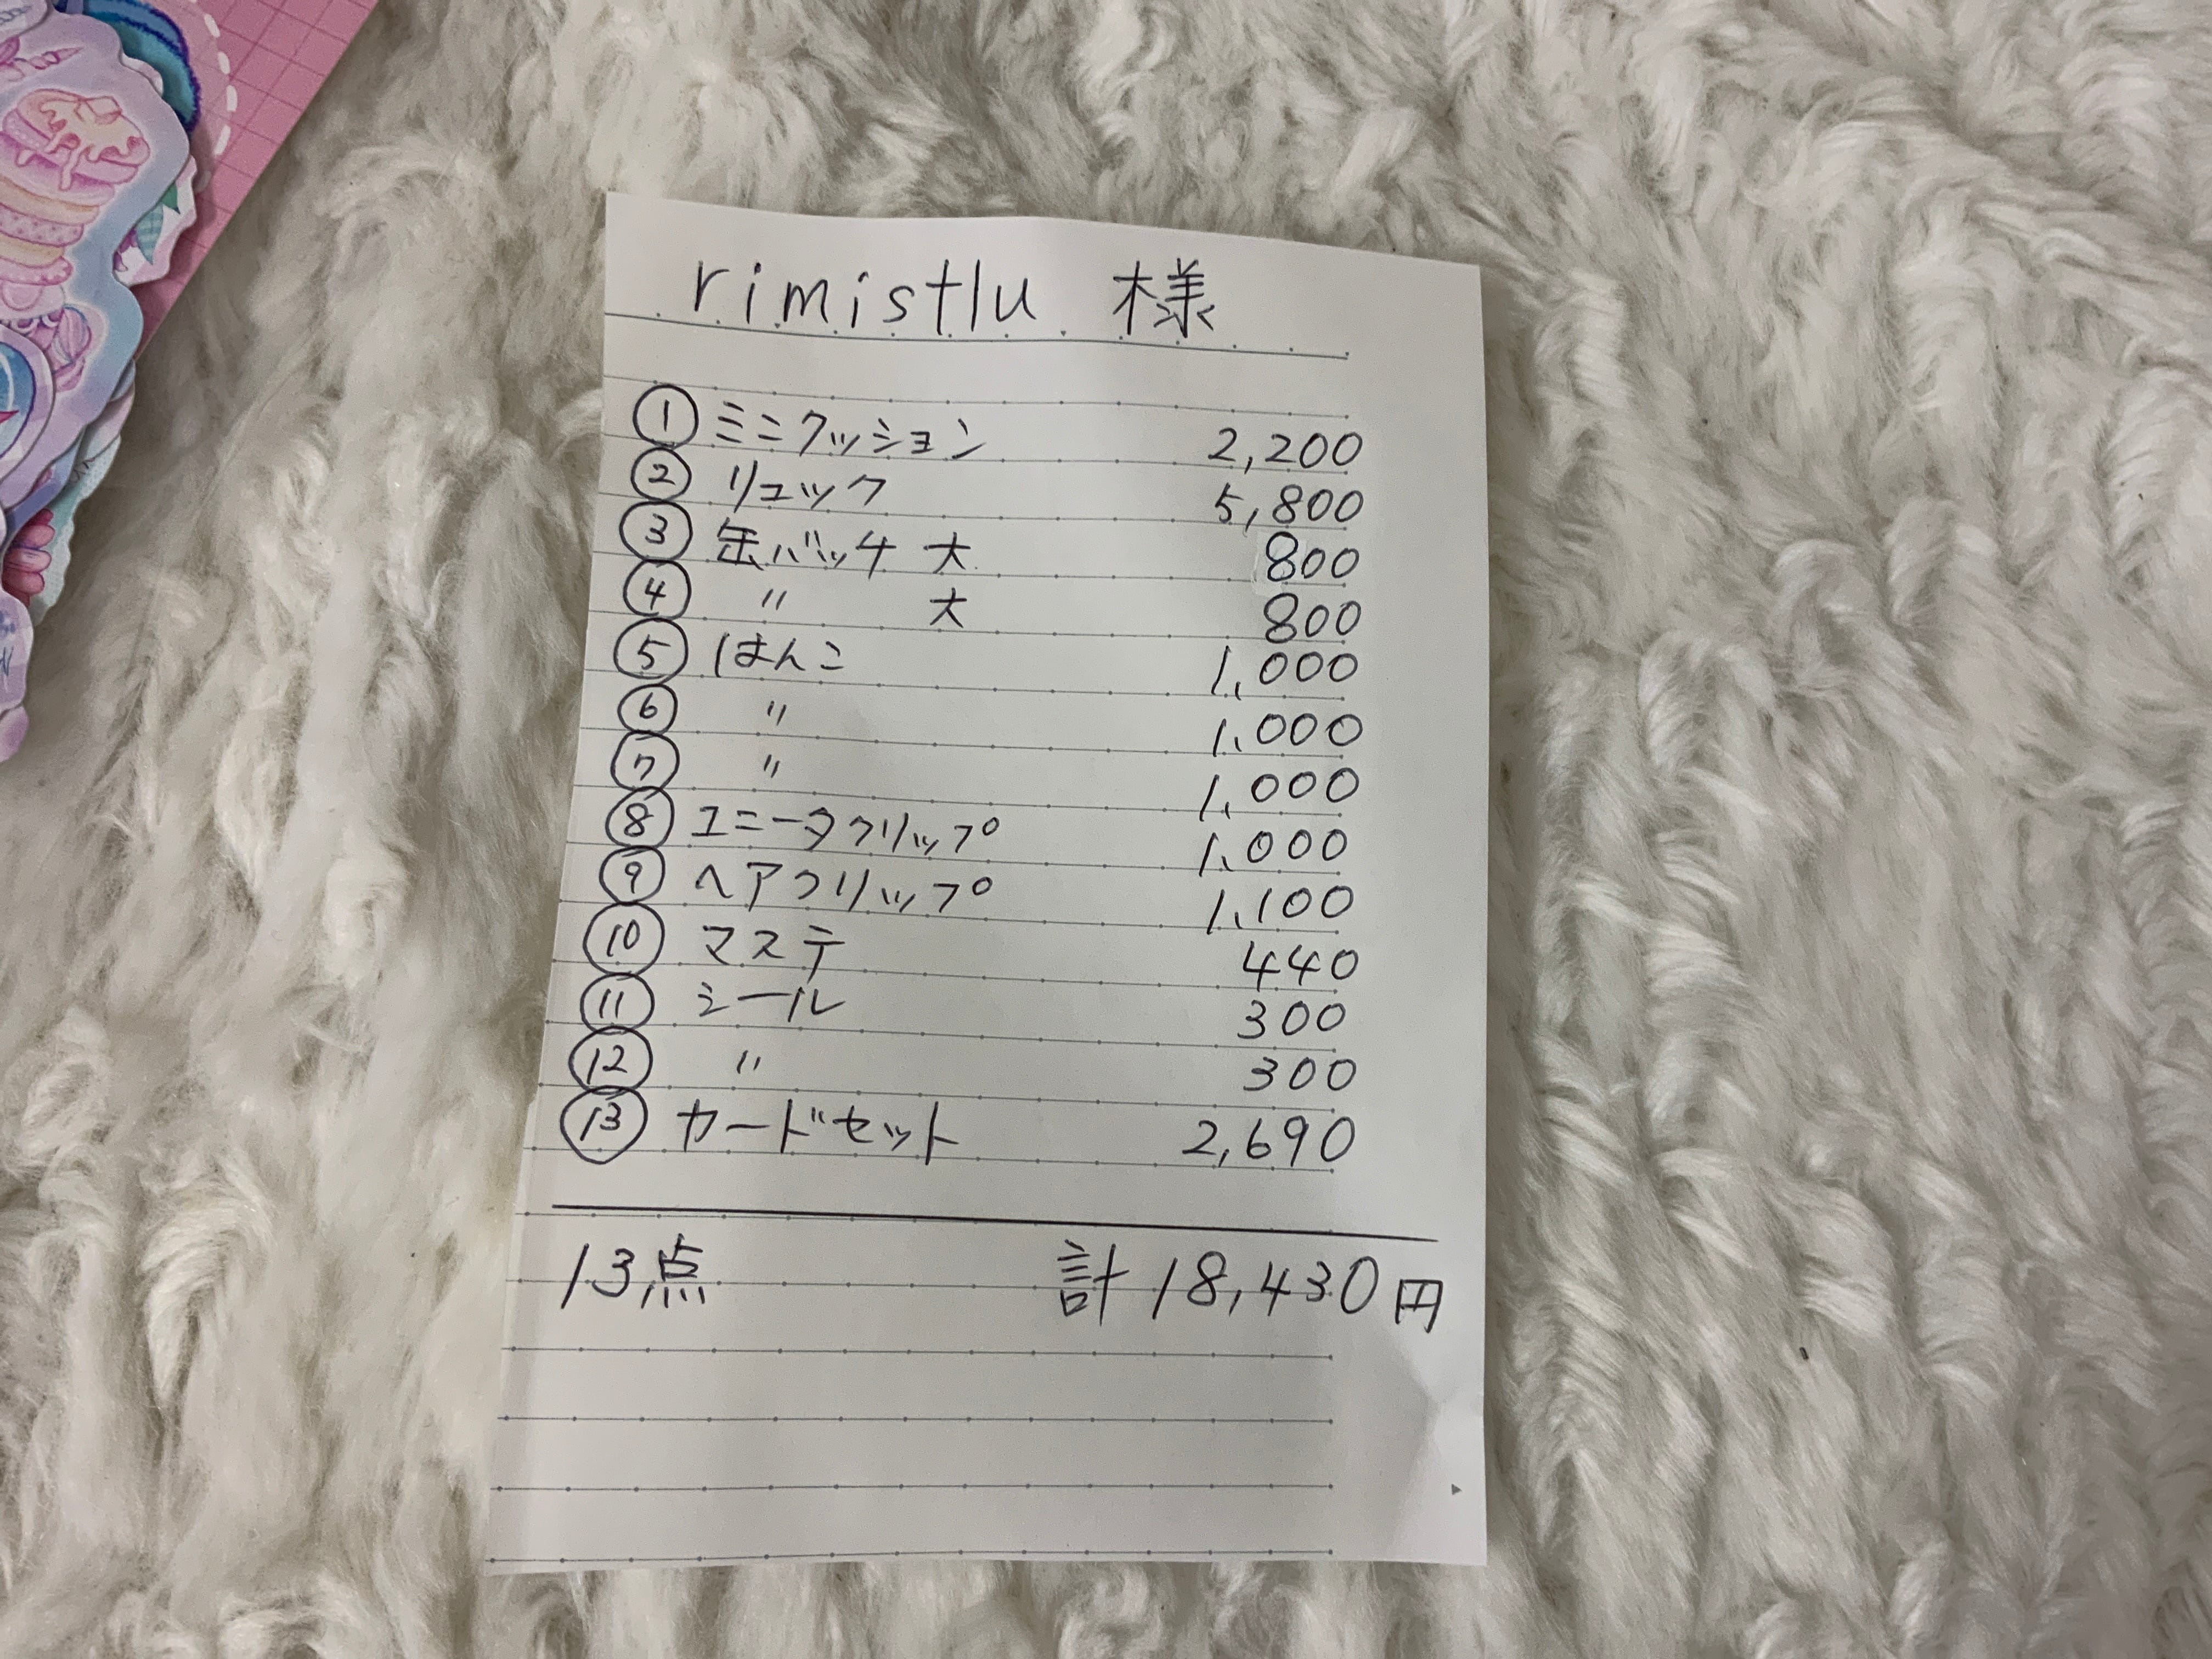 rimistlu 様
① ミニクッション 2,200
② リュック 5,800
③ 缶バッチ 大 800
④ 〃 大 800
⑤ はんこ 1,000
⑥ 〃 1,000
⑦ 〃 1,000
⑧ ユニータクリップ 1,000
⑨ ヘアクリップ 1,100
⑩ マステ 440
⑪ シール 300
⑫ 〃 300
⑬ カードセット 2,690
13点 計 18,430円